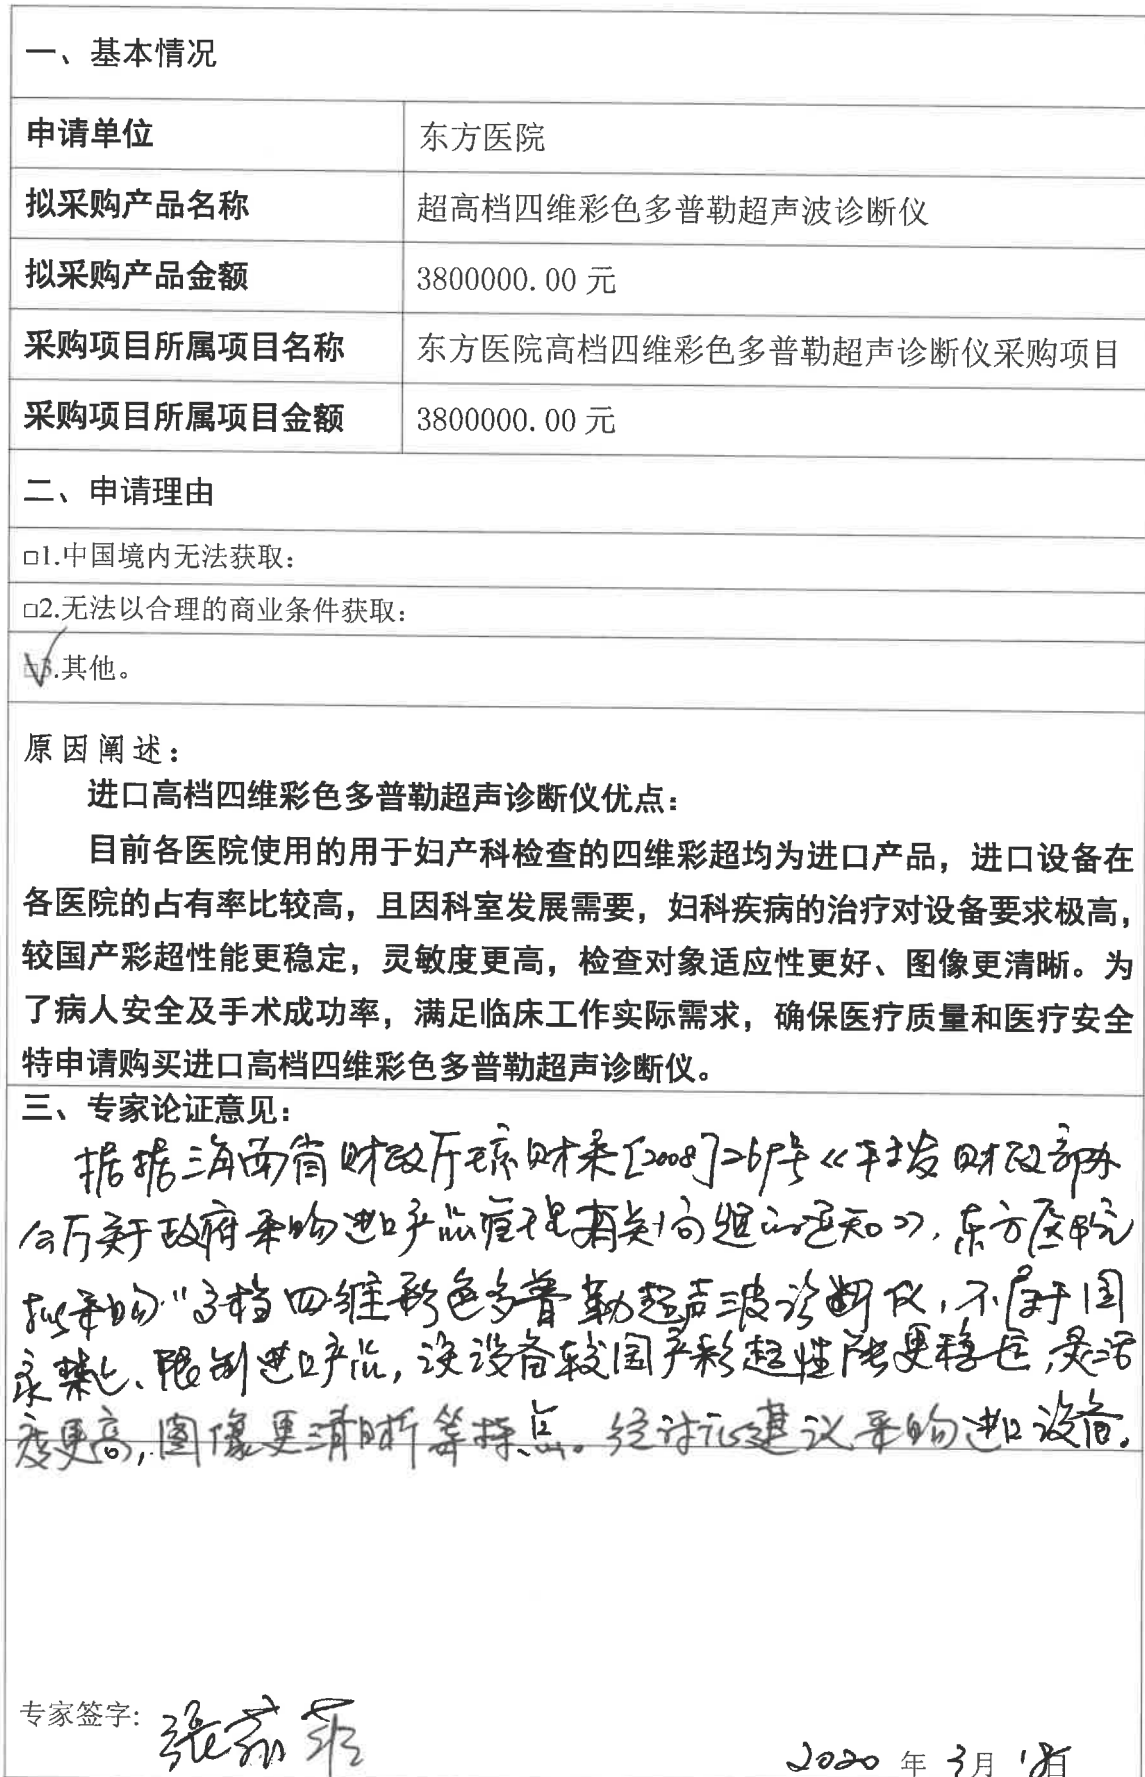 一、基本情况
申请单位 东方医院
拟采购产品名称 超高档四维彩色多普勒超声波诊断仪
拟采购产品金额 3800000.00 元
采购项目所属项目名称 东方医院高档四维彩色多普勒超声诊断仪采购项目
采购项目所属项目金额 3800000.00 元
二、申请理由
□1.中国境内无法获取:
□2.无法以合理的商业条件获取:
☑3.其他。
原因阐述:
进口高档四维彩色多普勒超声诊断仪优点:
目前各医院使用的用于妇产科检查的四维彩超均为进口产品,进口设备在
各医院的占有率比较高,且因科室发展需要,妇科疾病的治疗对设备要求极高,
较国产彩超性能更稳定,灵敏度更高,检查对象适应性更好、图像更清晰。为
了病人安全及手术成功率,满足临床工作实际需求,确保医疗质量和医疗安全
特申请购买进口高档四维彩色多普勒超声诊断仪。
三、专家论证意见:
据据海南省财政厅琼财采[2008]号《转发财政部办
公厅关于政府采购进口产品管理有关问题的通知》,东方医院
拟采购"高档四维彩色多普勒超声波诊断仪,不属于国
家禁止、限制进口产品,该设备较国产彩超性能更稳定,灵活
度更高,图像更清晰等特点。经讨论建议采购进口设备。
专家签字: 张
2020 年 3月 18日